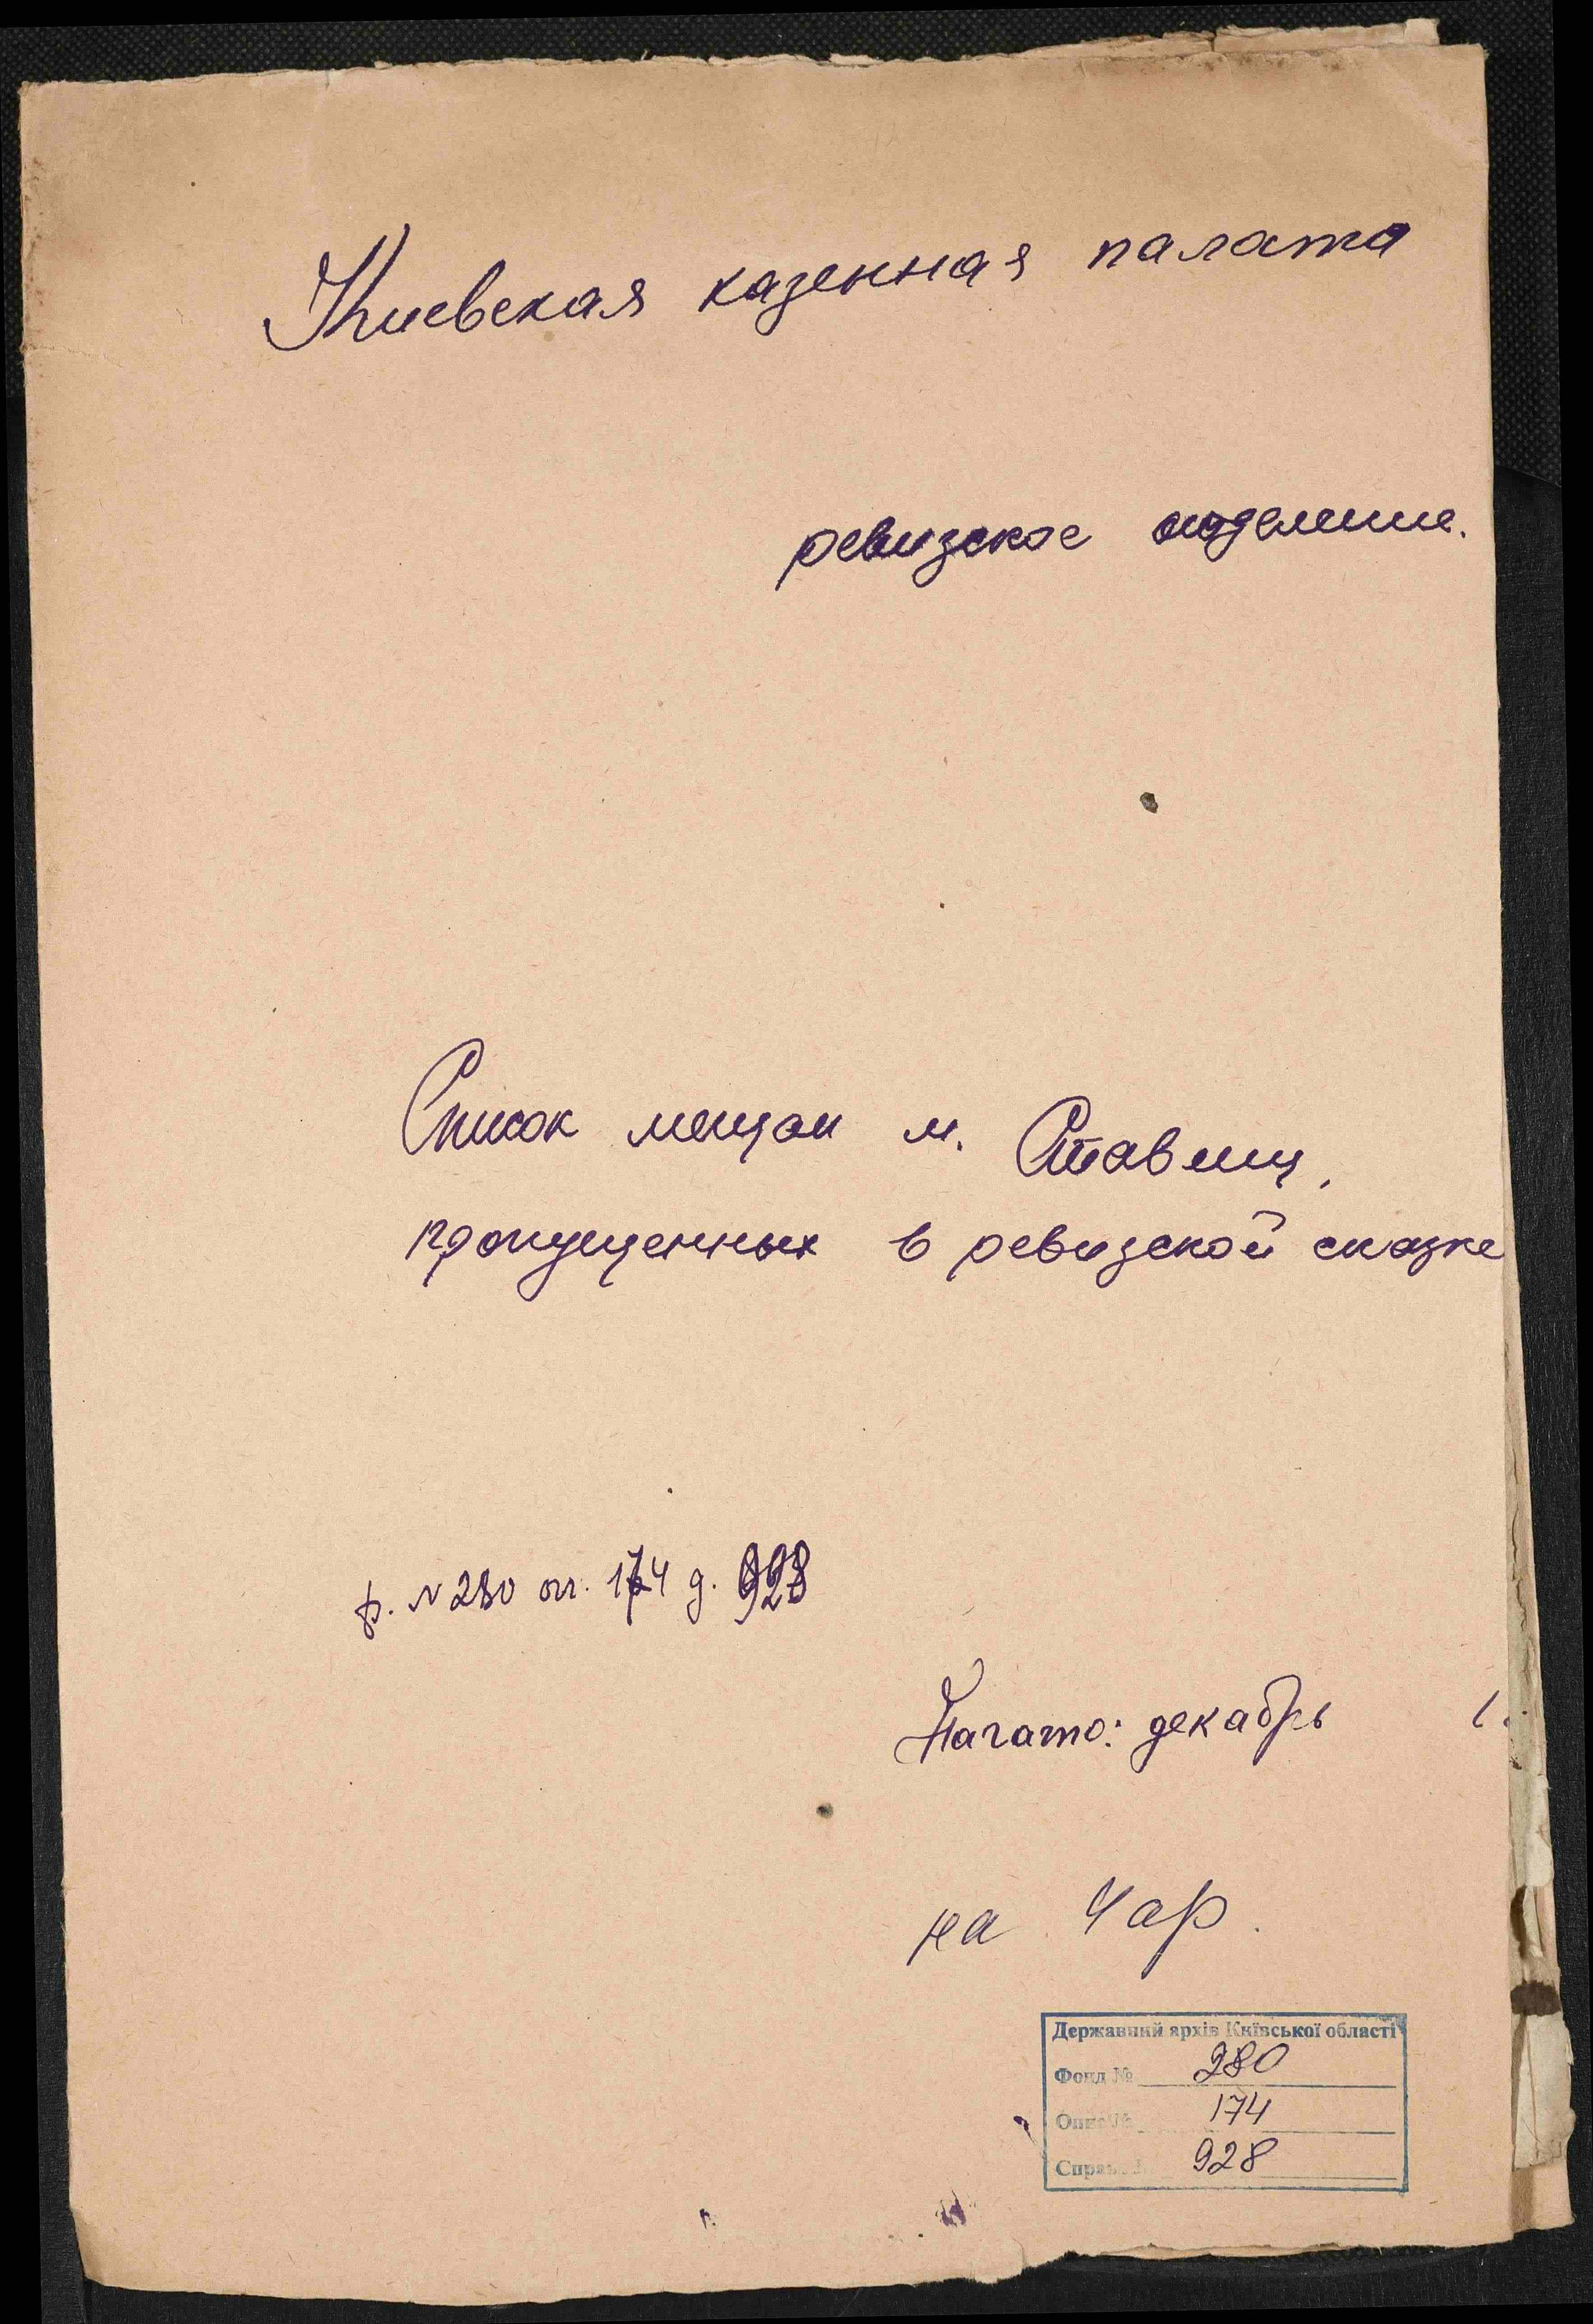 Киевская казенная палата
ревизское отделение.
Список мещан м. Ставищ,
пропущенных в ревизской сказке
ф. N 280 оп. 174 д. 928
Начато: декабрь 1
на 4 ар.
Державний архів Київської області
Фонд № 280
Опис № 174
Справа № 928